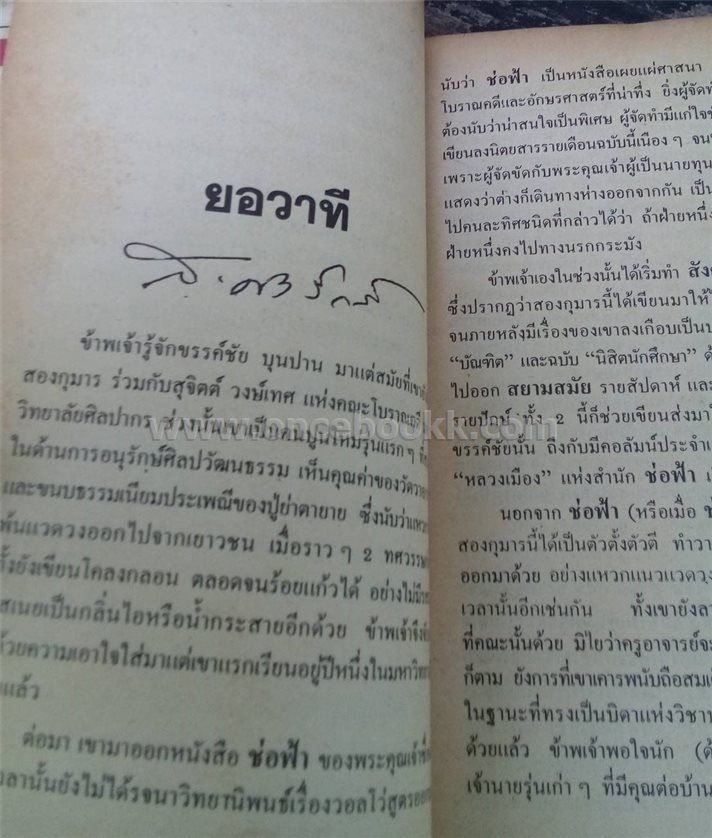 ยอวาที
ส. ศิวรักษ์
ข้าพเจ้ารู้จักขรรค์ชัย บุนปาน มาแต่สมัยที่เขา
สองกุมาร ร่วมกับสุจิตต์ วงษ์เทศ แห่งคณะโบราณคดี
วิทยาลัยศิลปากร ช่วงนั้นเขาเป็นคนปูนใหม่รุ่นแรก ๆ ที่
ในด้านการอนุรักษ์ศิลปวัฒนธรรม เห็นคุณค่าของวัดวา
และขนบธรรมเนียมประเพณีของปู่ย่าตายาย ซึ่งนับว่าแหวก
พ้นแวดวงออกไปจากเยาวชน เมื่อราว ๆ 2 ทศวรรษ
ทั้งยังเขียนโคลงกลอน ตลอดจนร้อยแก้วได้ อย่างไม่มี
สเนยเป็นกลิ่นไอหรือน้ำกระสายอีกด้วย ข้าพเจ้าจึง
ด้วยความเอาใจใส่มาแต่เขาแรกเรียนอยู่ปีหนึ่งในมหาวิทยา
แล้ว
ต่อมา เขามาออกหนังสือ ช่อฟ้า ของพระคุณเจ้า
เวลานั้นยังไม่ได้รจนาวิทยานิพนธ์เรื่องวอลโว่สูตรออก
นับว่า ช่อฟ้า เป็นหนังสือเผยแผ่ศาสนา
โบราณคดีและอักษรศาสตร์ที่น่าทึ่ง ยิ่งผู้จัดทำ
ต้องนับว่าน่าสนใจเป็นพิเศษ ผู้จัดทำมีแก่ใจ
เขียนลงนิตยสารรายเดือนฉบับนี้เนือง ๆ จน
เพราะผู้จัดขัดกับพระคุณเจ้าผู้เป็นนายทุน
แสดงว่าต่างก็เดินทางห่างออกจากกัน เป็น
ไปคนละทิศชนิดที่กล่าวได้ว่า ถ้าฝ่ายหนึ่ง
ฝ่ายหนึ่งคงไปทางนรกกระมัง
ข้าพเจ้าเองในช่วงนั้นได้เริ่มทำ สัง
ซึ่งปรากฏว่าสองกุมารนี้ได้เขียนมาให้
จนภายหลังมีเรื่องของเขาลงเกือบเป็น
“บัณฑิต” และฉบับ “นิสิตนักศึกษา” ด้
ไปออก สยามสมัย รายสัปดาห์ และ
รายปักษ์ ทั้ง 2 นี้ก็ช่วยเขียนส่งมา
ขรรค์ชัยนั้น ถึงกับมีคอลัมน์ประจำ
“หลวงเมือง” แห่งสำนัก ช่อฟ้า
นอกจาก ช่อฟ้า (หรือเมื่อ
สองกุมารนี้ได้เป็นตัวตั้งตัวตี ทำวา
ออกมาด้วย อย่างแหวกแนวแวดวง
เวลานั้นอีกเช่นกัน ทั้งเขายังลา
ที่คณะนั้นด้วย มิไยว่าครูอาจารย์จะ
ก็ตาม ยังการที่เขาเคารพนับถือสมเด็
ในฐานะที่ทรงเป็นบิดาแห่งวิชา
ด้วยแล้ว ข้าพเจ้าพอใจนัก (ด้
เจ้านายรุ่นเก่า ๆ ที่มีคุณต่อบ้าน
www.oncebookk.com